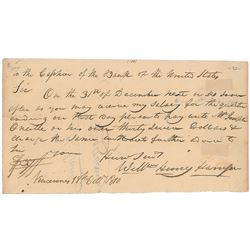 To the Cashier of the Bank of the United States
Sir
On the 31st of December next or as soon
after as you may receive my salary for the quarter
ending on that Day please to pay unto Mr Joseph
or his order thirty Seven Dollars &
charge the Same without further advice to
Sir your Humb Servt
Willm Henry Harrison
Vincennes 18th Octr 1810